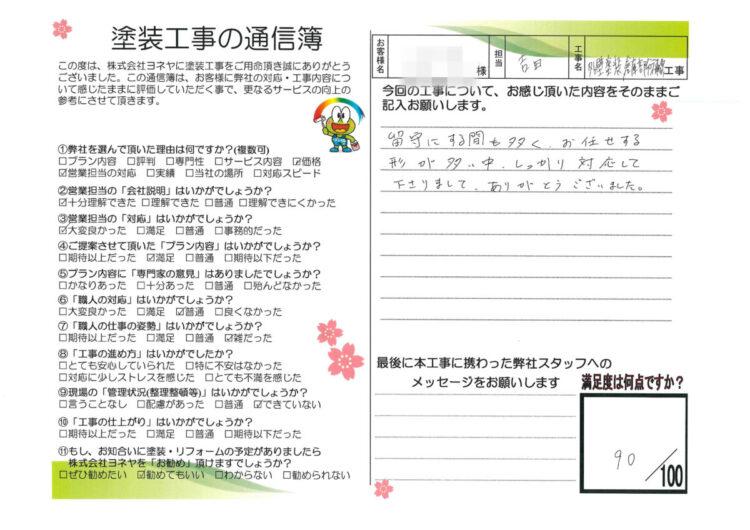 塗装工事の通信簿
この度は、株式会社ヨネヤに塗装工事をご用命頂き誠にありがとう
ございました。この通信簿は、お客様に弊社の対応・工事内容につ
いて感じたままに評価していただく事で、更なるサービスの向上の
参考にさせて頂きます。
①弊社を選んで頂いた理由は何ですか?(複数可)
□プラン内容 □評判 □専門性 □サービス内容 ☑価格
☑営業担当の対応 □実績 □当社の場所 □対応スピード
②営業担当の「会社説明」はいかがでしょうか?
☑十分理解できた □理解できた □普通 □理解できにくかった
③営業担当の「対応」はいかがでしょうか?
☑大変良かった □満足 □普通 □事務的だった
④ご提案させて頂いた「プラン内容」はいかがでしょうか?
□期待以上だった ☑満足 □普通 □期待以下だった
⑤プラン内容に「専門家の意見」はありましたでしょうか?
□かなりあった □十分あった □普通 □殆んどなかった
⑥「職人の対応」はいかがでしょうか?
□大変良かった □満足 ☑普通 □良くなかった
⑦「職人の仕事の姿勢」はいかがでしょうか?
□期待以上だった □満足 □普通 ☑雑だった
⑧「工事の進め方」はいかがでしたか?
□とても安心していられた □特に不安はなかった
□対応に少しストレスを感じた □とても不満を感じた
⑨現場の「管理状況(整理整頓等)」はいかがでしょうか?
□言うことなし □配慮があった □普通 ☑できていない
⑩「工事の仕上がり」はいかがでしょうか?
□期待以上だった □満足 □普通 □期待以下だった
⑪もし、お知合いに塗装・リフォームの予定がありましたら
株式会社ヨネヤを「お勧め」頂けますでしょうか?
□ぜひ勧めたい ☑勧めてもいい □わからない □勧められない
お客様名 様 担当 吉田 工事名 工事
今回の工事について、お感じ頂いた内容をそのままご
記入お願いします。
留守にする間も多く、お任せする
形が多い中、しっかり対応して
下さりまして、ありがとうございました。
最後に本工事に携わった弊社スタッフへの
メッセージをお願いします
満足度は何点ですか?
90/100